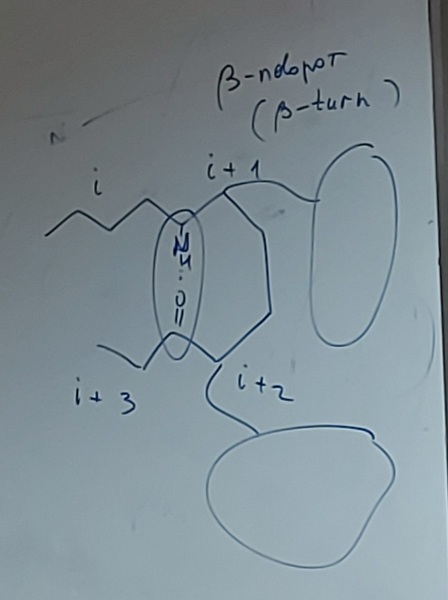 β-поворот
(β-turn)
N
i
i + 1
N
H
O
i + 3
i + 2